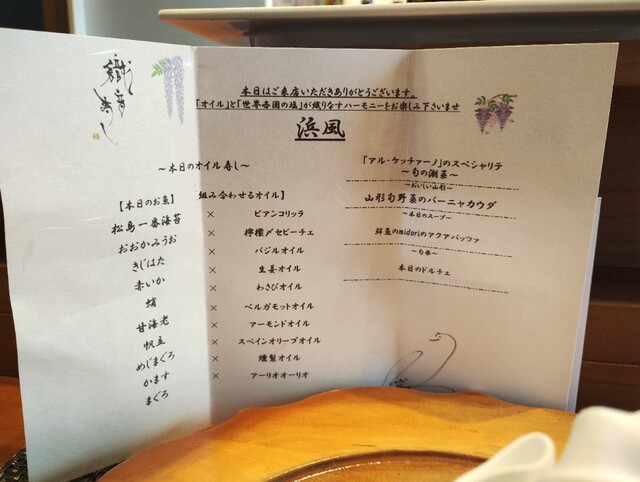 本日はご来店いただきありがとうございます。
「オイル」と「世界各国の塩」が織りなすハーモニーをお楽しみ下さいませ
浜風
〜本日のオイル寿し〜
【本日のお魚】 組み合わせるオイル】
松島一番海苔 × ビアンコリッラ
おおかみうお × 檸檬〆セビーチェ
きじはた × バジルオイル
赤いか × 生姜オイル
蛸 × わさびオイル
甘海老 × ベルガモットオイル
帆立 × アーモンドオイル
めじまぐろ × スペインオリーブオイル
かます × 燻製オイル
まぐろ × アーリオオーリオ
「アル・ケッチァーノ」のスペシャリテ
〜旬の潮菜〜
〜おいしい山形〜
山形旬野菜のバーニャカウダ
〜本日のスープ〜
鮮魚のmidoriのアクアパッツァ
本日のドルチェ